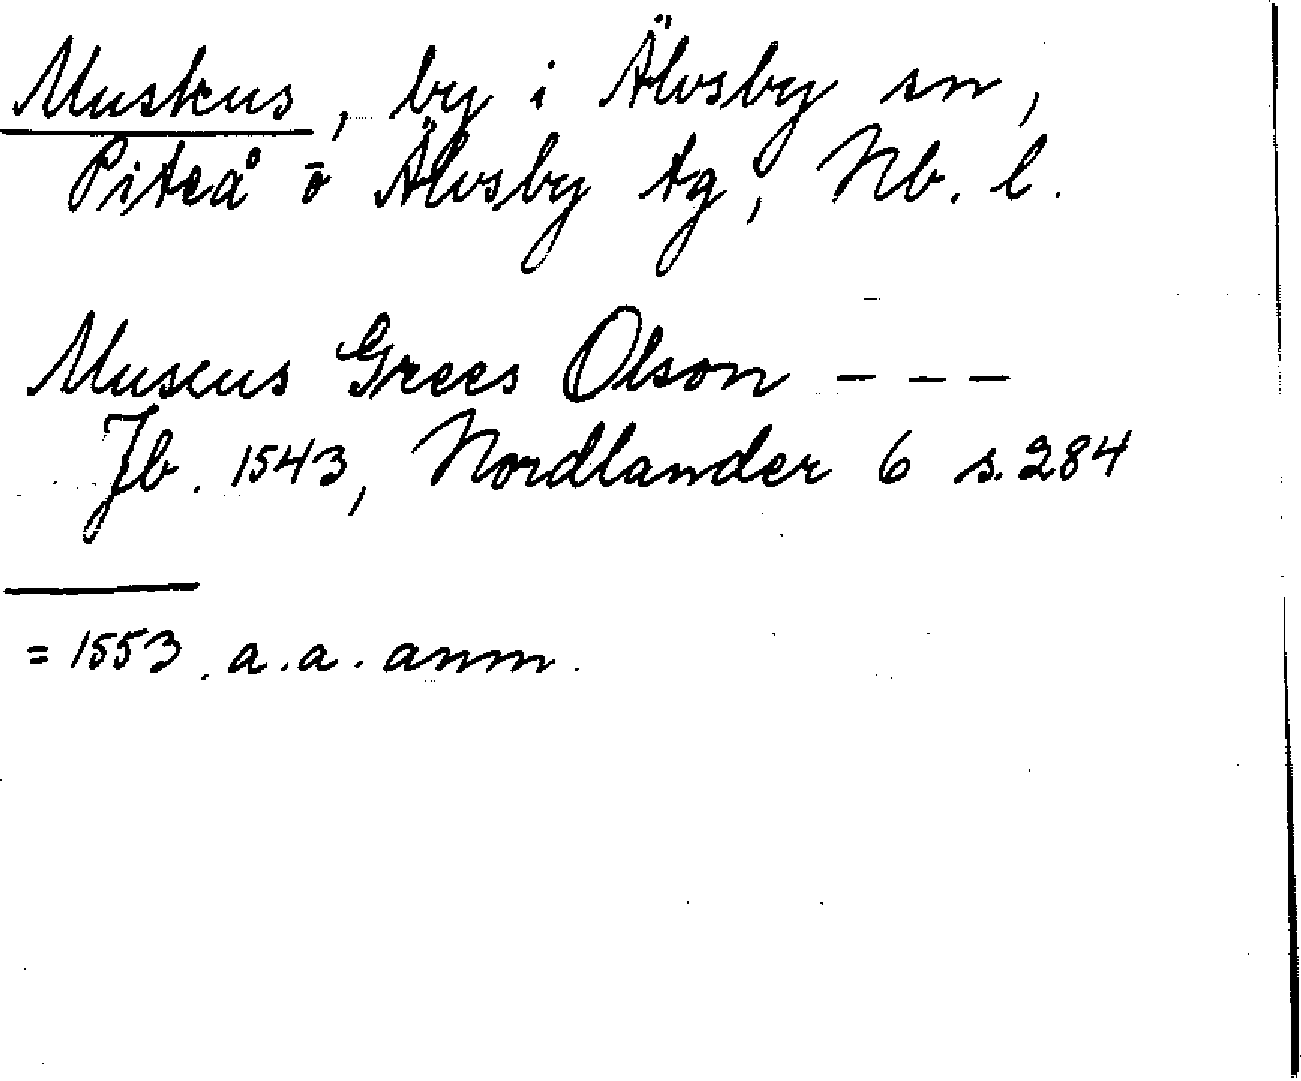 Muskus, by i Älvsby sn,
Piteå o Älvsby tg, Nb. l.
Muscus Grees Olson - - -
Jb. 1543, Nordlander 6 s. 284
= 1553. a. a. anm.